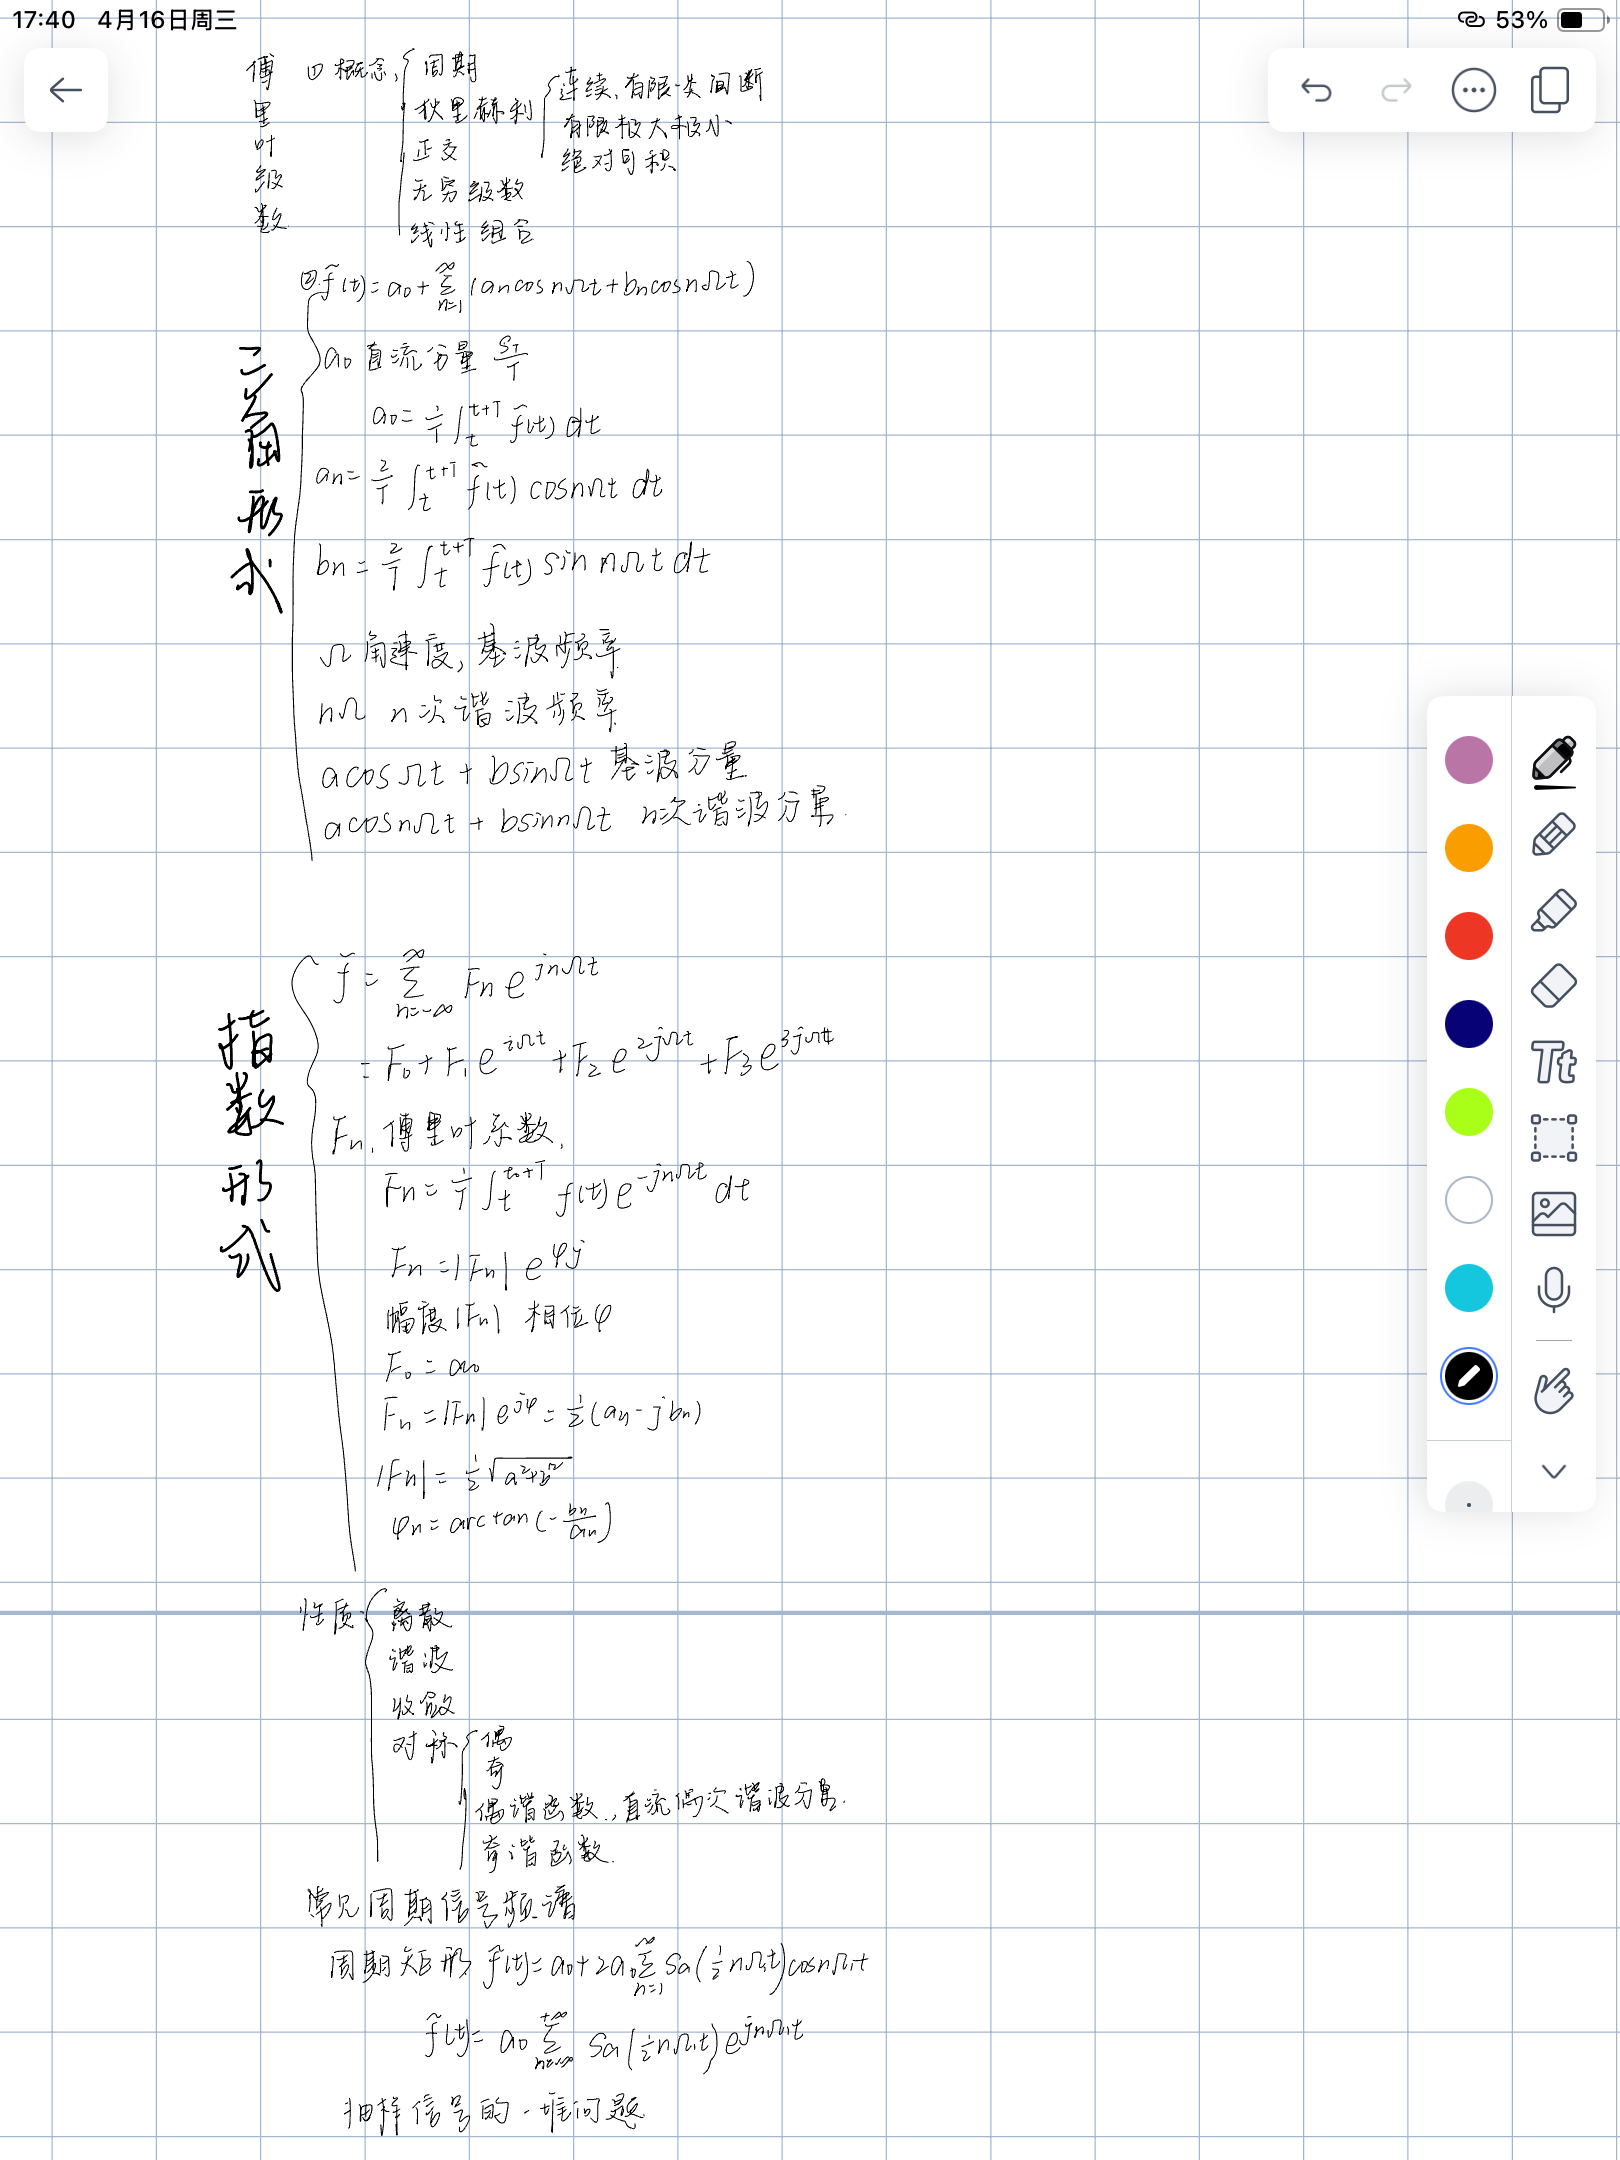 17:40 4月16日周三
53%
傅里叶级数
① 概念,
周期
狄里赫利
连续、有限次间断
有限极大极小
绝对可积
正交
无穷级数
线性组合
三角形式
② f̃(t)=a₀+∑_{n=1}^{∞}(ancosnΩt+bncosnΩt)
a₀ 直流分量 S_T/T
a₀=1/T ∫_t^{t+T} f̃(t) dt
an=2/T ∫_t^{t+T} f̃(t) cosnΩt dt
bn=2/T ∫_t^{t+T} f̃(t) sin nΩt dt
Ω 角速度,基波频率
nΩ n次谐波频率
acosΩt + bsinΩt 基波分量
acosnΩt + bsinnΩt n次谐波分量.
指数形式
f̃= ∑_{n=-∞}^{∞} Fn e^{jnΩt}
= F₀+F₁e^{jΩt}+F₂e^{2jΩt}+F₃e^{3jΩt}
Fn, 傅里叶系数,
Fn=1/T ∫_t^{t₀+T} f(t)e^{-jnΩt} dt
Fn=|Fn| e^{φj}
幅度|Fn| 相位φ
F₀=a₀
Fn=|Fn|e^{jφ}=1/2(an-jbn)
|Fn|=1/2√(a²+b²)
φn=arctan(-bn/an)
性质
离散
谐波
收敛
对称
偶
奇
偶谐函数.,直流偶次谐波分量.
奇谐函数.
常见周期信号频谱
周期矩形 f̃(t)=a₀+2a₀∑_{n=1}^{∞} Sa(1/2 nΩ₁t)cosnΩ₁t
f̃(t)= a₀ ∑_{n=-∞}^{+∞} Sa(1/2 nΩ₁t)e^{jnΩ₁t}
抽样信号的一堆问题
Tt